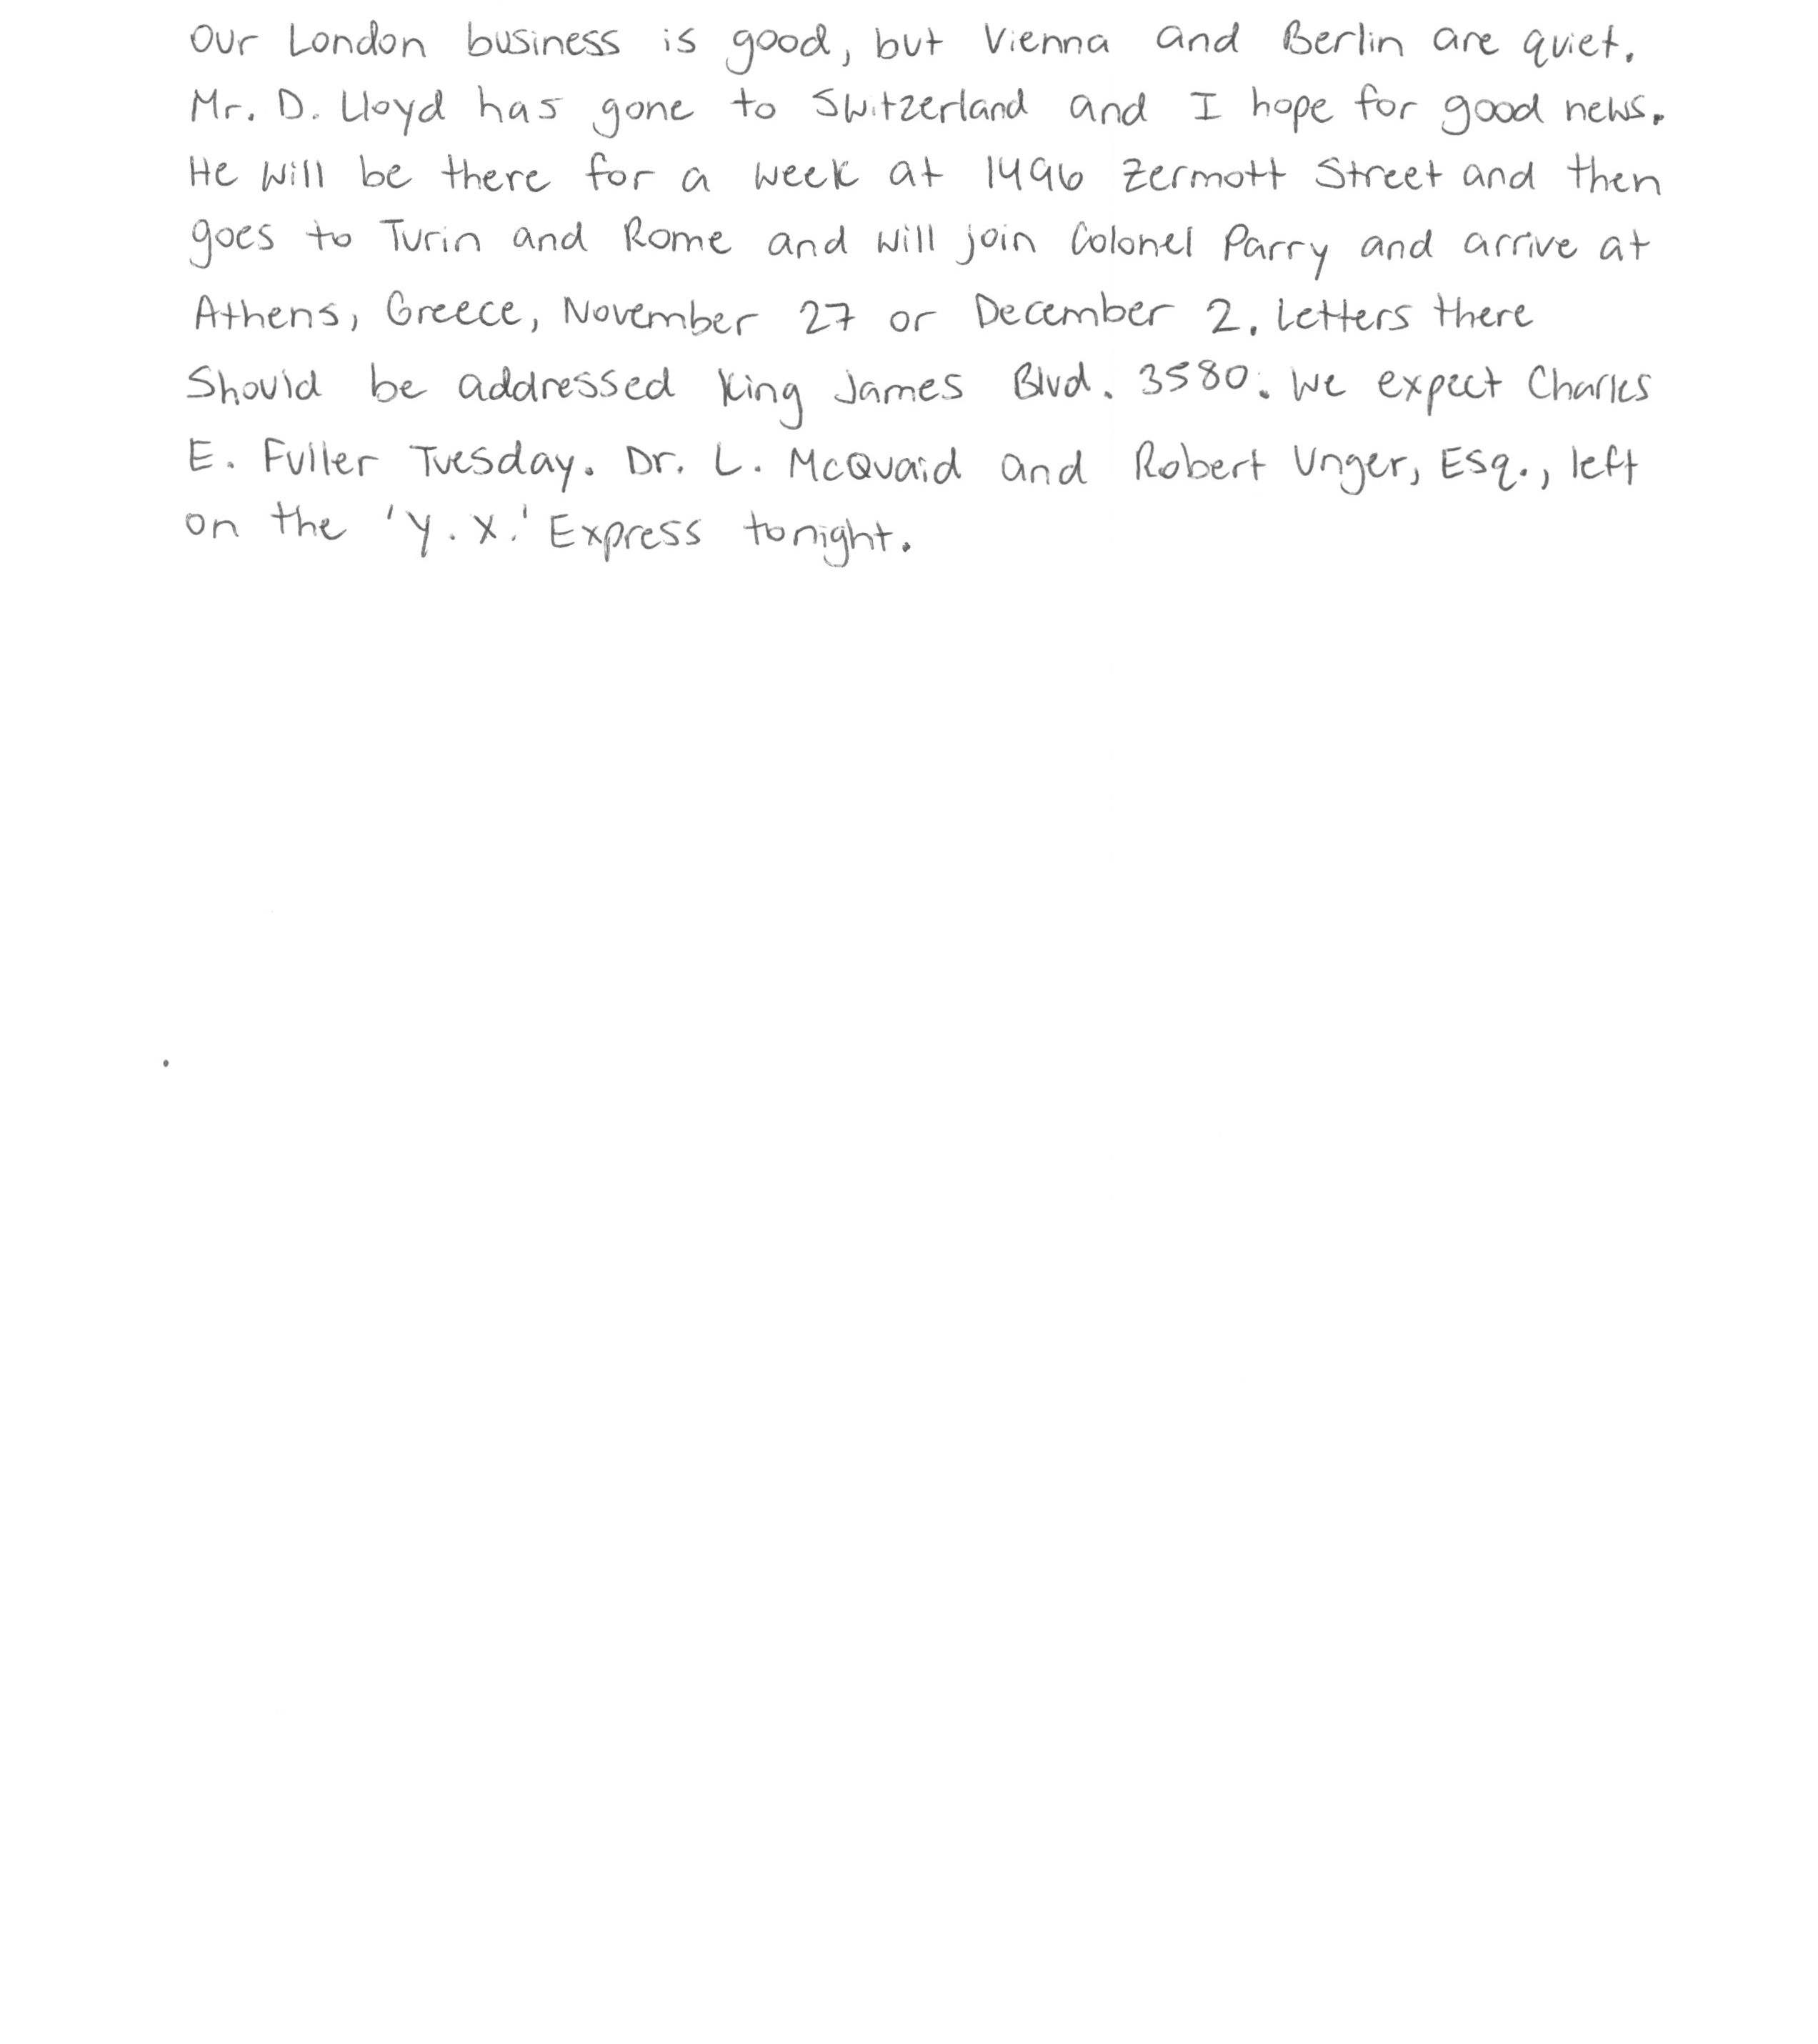 Our London business is good, but Vienna and Berlin are quiet.
Mr. D. Lloyd has gone to Switzerland and I hope for good news.
He will be there for a week at 1496 Zermott Street and then
goes to Turin and Rome and will join Colonel Parry and arrive at
Athens, Greece, November 27 or December 2. Letters there
Should be addressed King James Blvd. 3580. We expect Charles
E. Fuller Tuesday. Dr. L. McQuaid and Robert Unger, Esq., left
on the 'Y.X.' Express tonight.